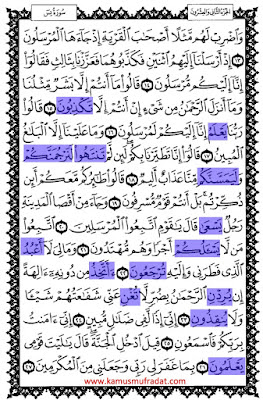 الجزء الثاني والعشرون سورة يس
وَاضْرِبْ لَهُم مَّثَلًا أَصْحَٰبَ الْقَرْيَةِ إِذْ جَاءَهَا الْمُرْسَلُونَ
﴿١٣﴾ إِذْ أَرْسَلْنَا إِلَيْهِمُ اثْنَيْنِ فَكَذَّبُوهُمَا فَعَزَّزْنَا بِثَالِثٍ فَقَالُوا
إِنَّا إِلَيْكُم مُّرْسَلُونَ ﴿١٤﴾ قَالُوا مَا أَنتُمْ إِلَّا بَشَرٌ مِّثْلُنَا
وَمَا أَنزَلَ الرَّحْمَٰنُ مِن شَيْءٍ إِنْ أَنتُمْ إِلَّا تَكْذِبُونَ ﴿١٥﴾ قَالُوا
رَبُّنَا يَعْلَمُ إِنَّا إِلَيْكُمْ لَمُرْسَلُونَ ﴿١٦﴾ وَمَا عَلَيْنَا إِلَّا الْبَلَٰغُ
الْمُبِينُ ﴿١٧﴾ قَالُوا إِنَّا تَطَيَّرْنَا بِكُمْ لَئِن لَّمْ تَنتَهُوا لَنَرْجُمَنَّكُمْ
وَلَيَمَسَّنَّكُم مِّنَّا عَذَابٌ أَلِيمٌ ﴿١٨﴾ قَالُوا طَٰئِرُكُم مَّعَكُمْ أَئِن
ذُكِّرْتُم بَلْ أَنتُمْ قَوْمٌ مُّسْرِفُونَ ﴿١٩﴾ وَجَاءَ مِنْ أَقْصَا الْمَدِينَةِ
رَجُلٌ يَسْعَىٰ قَالَ يَٰقَوْمِ اتَّبِعُوا الْمُرْسَلِينَ ﴿٢٠﴾ اتَّبِعُوا
مَن لَّا يَسْـَٔلُكُمْ أَجْرًا وَهُم مُّهْتَدُونَ ﴿٢١﴾ وَمَالِيَ لَا أَعْبُدُ
الَّذِي فَطَرَنِي وَإِلَيْهِ تُرْجَعُونَ ﴿٢٢﴾ ءَأَتَّخِذُ مِن دُونِهِ ءَالِهَةً
إِن يُرِدْنِ الرَّحْمَٰنُ بِضُرٍّ لَّا تُغْنِ عَنِّي شَفَٰعَتُهُمْ شَيْـًٔا
وَلَا يُنقِذُونِ ﴿٢٣﴾ إِنِّي إِذًا لَّفِي ضَلَٰلٍ مُّبِينٍ ﴿٢٤﴾ إِنِّي ءَامَنتُ
بِرَبِّكُمْ فَاسْمَعُونِ ﴿٢٥﴾ قِيلَ ادْخُلِ الْجَنَّةَ قَالَ يَٰلَيْتَ قَوْمِي
يَعْلَمُونَ ﴿٢٦﴾ بِمَا غَفَرَ لِي رَبِّي وَجَعَلَنِي مِنَ الْمُكْرَمِينَ ﴿٢٧﴾
www.kamusmufradat.com